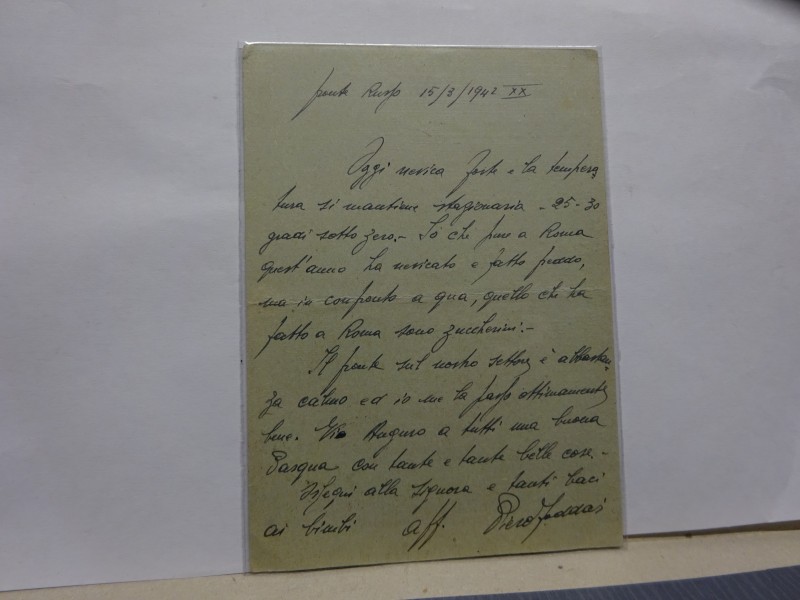 fronte Russo 15/3/1942 XX
Oggi nevica forte e la tempera
tura si mantiene stazionaria - 25-30
gradi sotto zero.- So che pure a Roma
quest'anno ha nevicato e fatto freddo,
ma in confronto a qua, quello che ha
fatto a Roma sono zuccherini.-
Il fronte sul nostro settore è abbastan
za calmo ed io me la passo ottimamente
bene. Vi Auguro a tutti una buona
Pasqua con tante e tante belle cose -
Ossequi alla Signora e tanti baci
ai bimbi aff. Piero